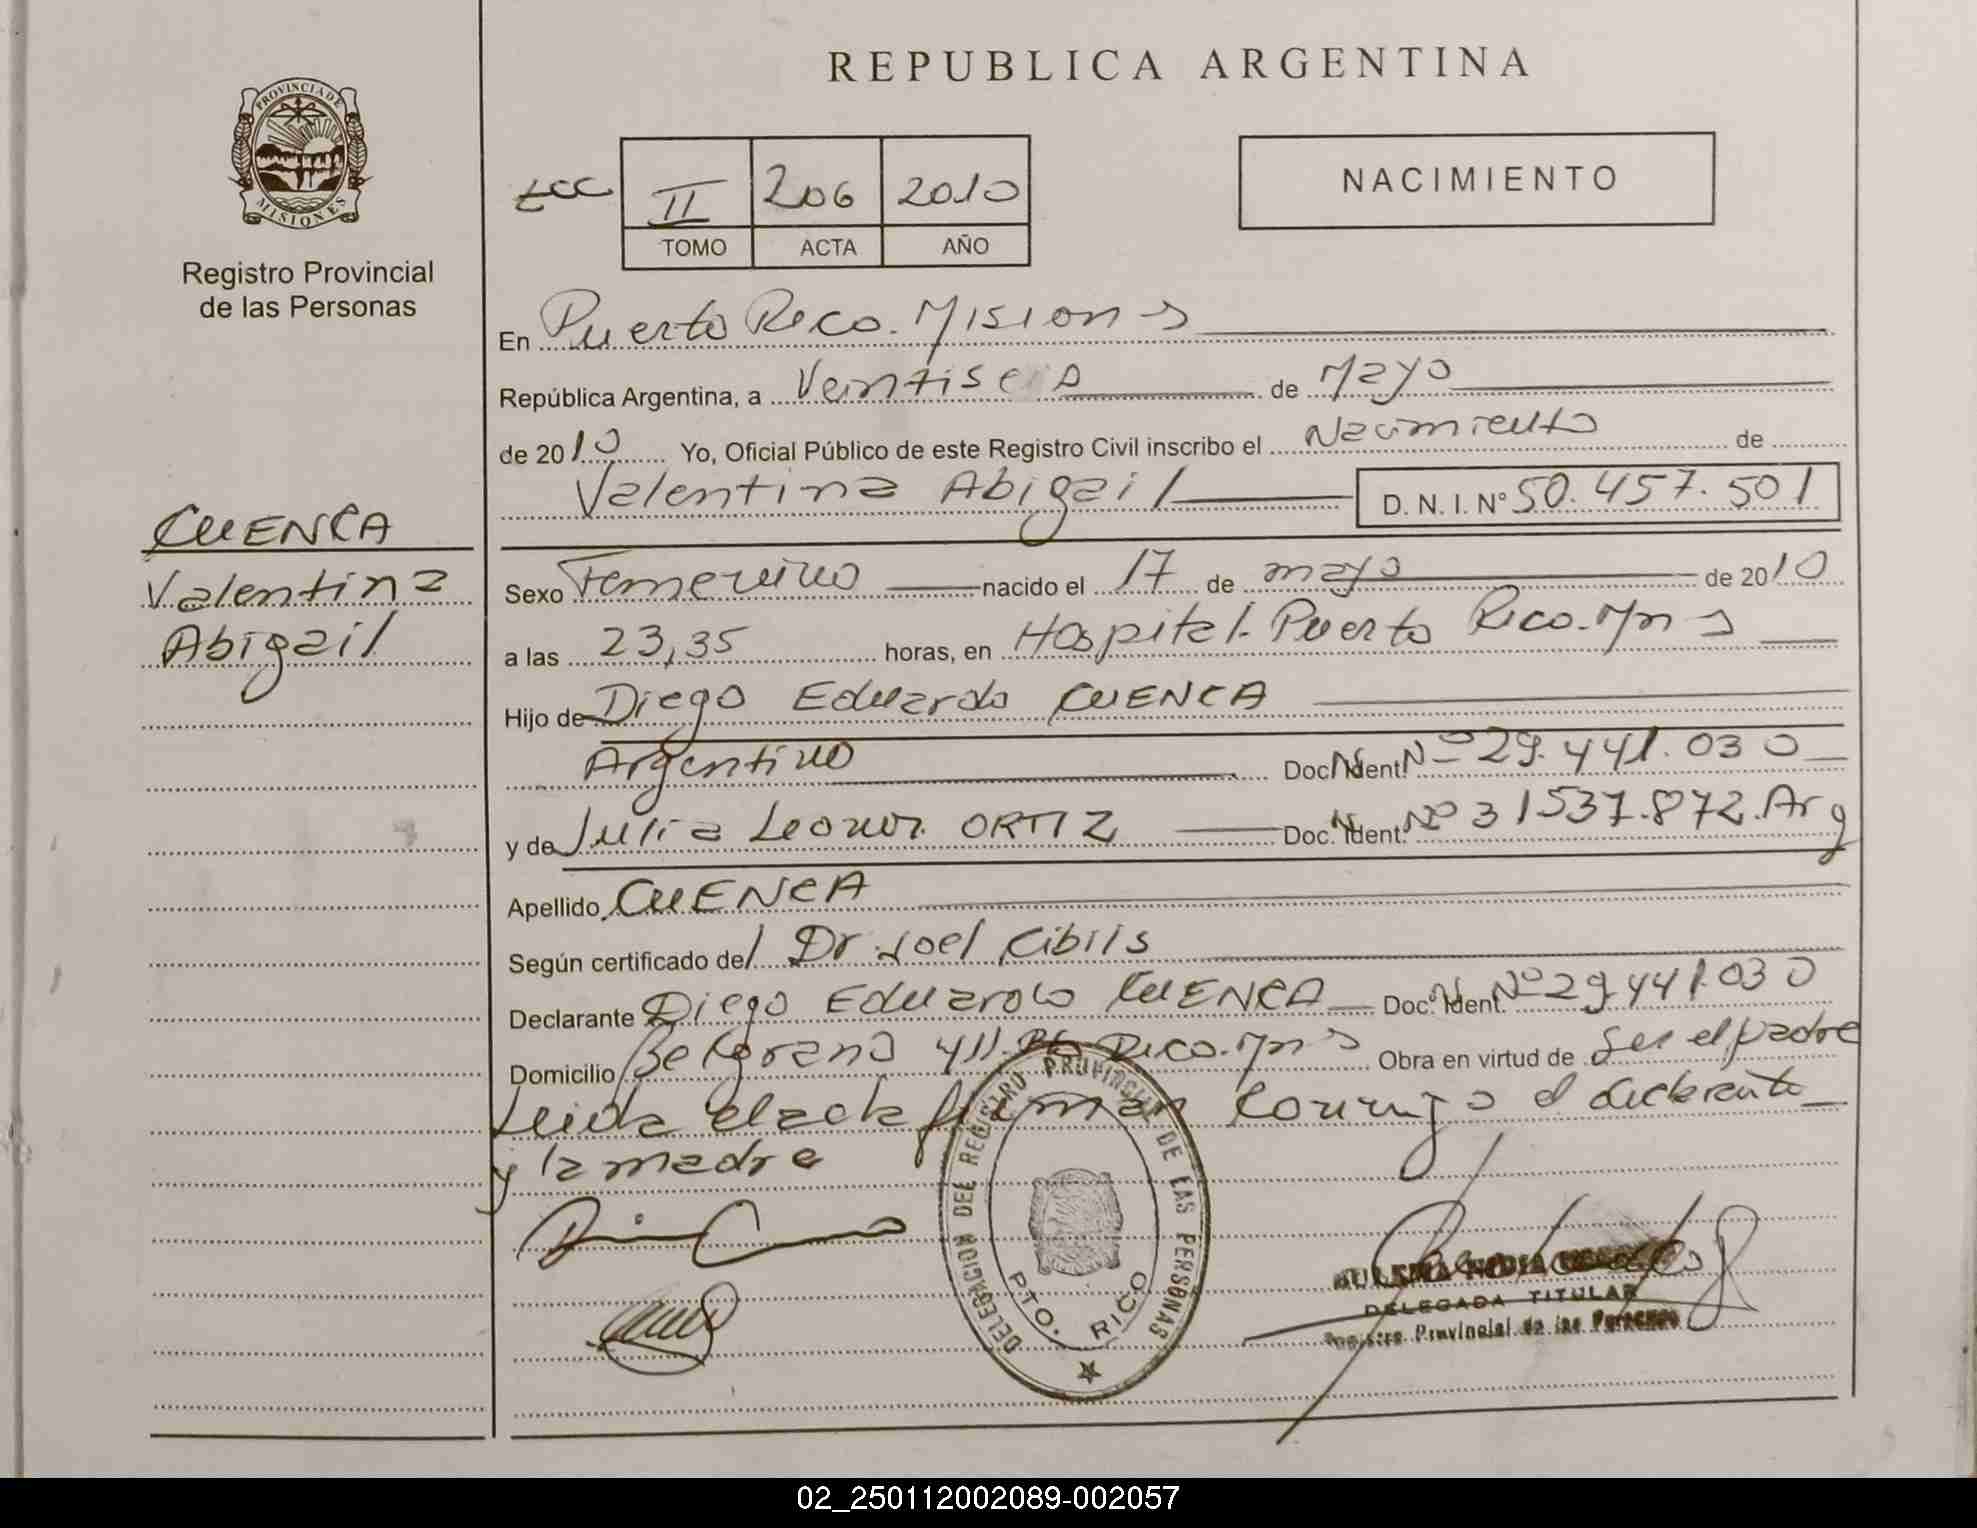 REPUBLICA ARGENTINA
PROVINCIA DE
MISIONES
Registro Provincial
de las Personas
II 206 2010
TOMO ACTA AÑO
NACIMIENTO
En Puerto Rico. Misiones
República Argentina, a Veintiseis de Mayo
de 2010 Yo, Oficial Público de este Registro Civil inscribo el Nacimiento de
Valentina Abigail D. N. I. Nº 50.457.501
CUENCA
Valentina
Abigail
Sexo Femenino nacido el 17 de mayo de 2010
a las 23,35 horas, en Hospital. Puerto Rico. Mnes
Hijo de Diego Eduardo CUENCA
Argentino Doc. Ident. Nº 29.441.030
y de Julia Leonor ORTIZ Doc. Ident. Nº 31537.872. Arg
Apellido CUENCA
Según certificado del Dr. Joel Cibils
Declarante Diego Eduardo CUENCA Doc. Ident. Nº 29.441.030
Domicilio Belgrano 411. Pto Rico. Mnes Obra en virtud de ser el padre
Leida el acta firman conmigo el declarante
y la madre
DELEGACION DEL REGISTRO PROVINCIAL DE LAS PERSONAS
PTO. RICO
DELEGADA TITULAR
Registro Provincial de las Personas
02_250112002089-002057